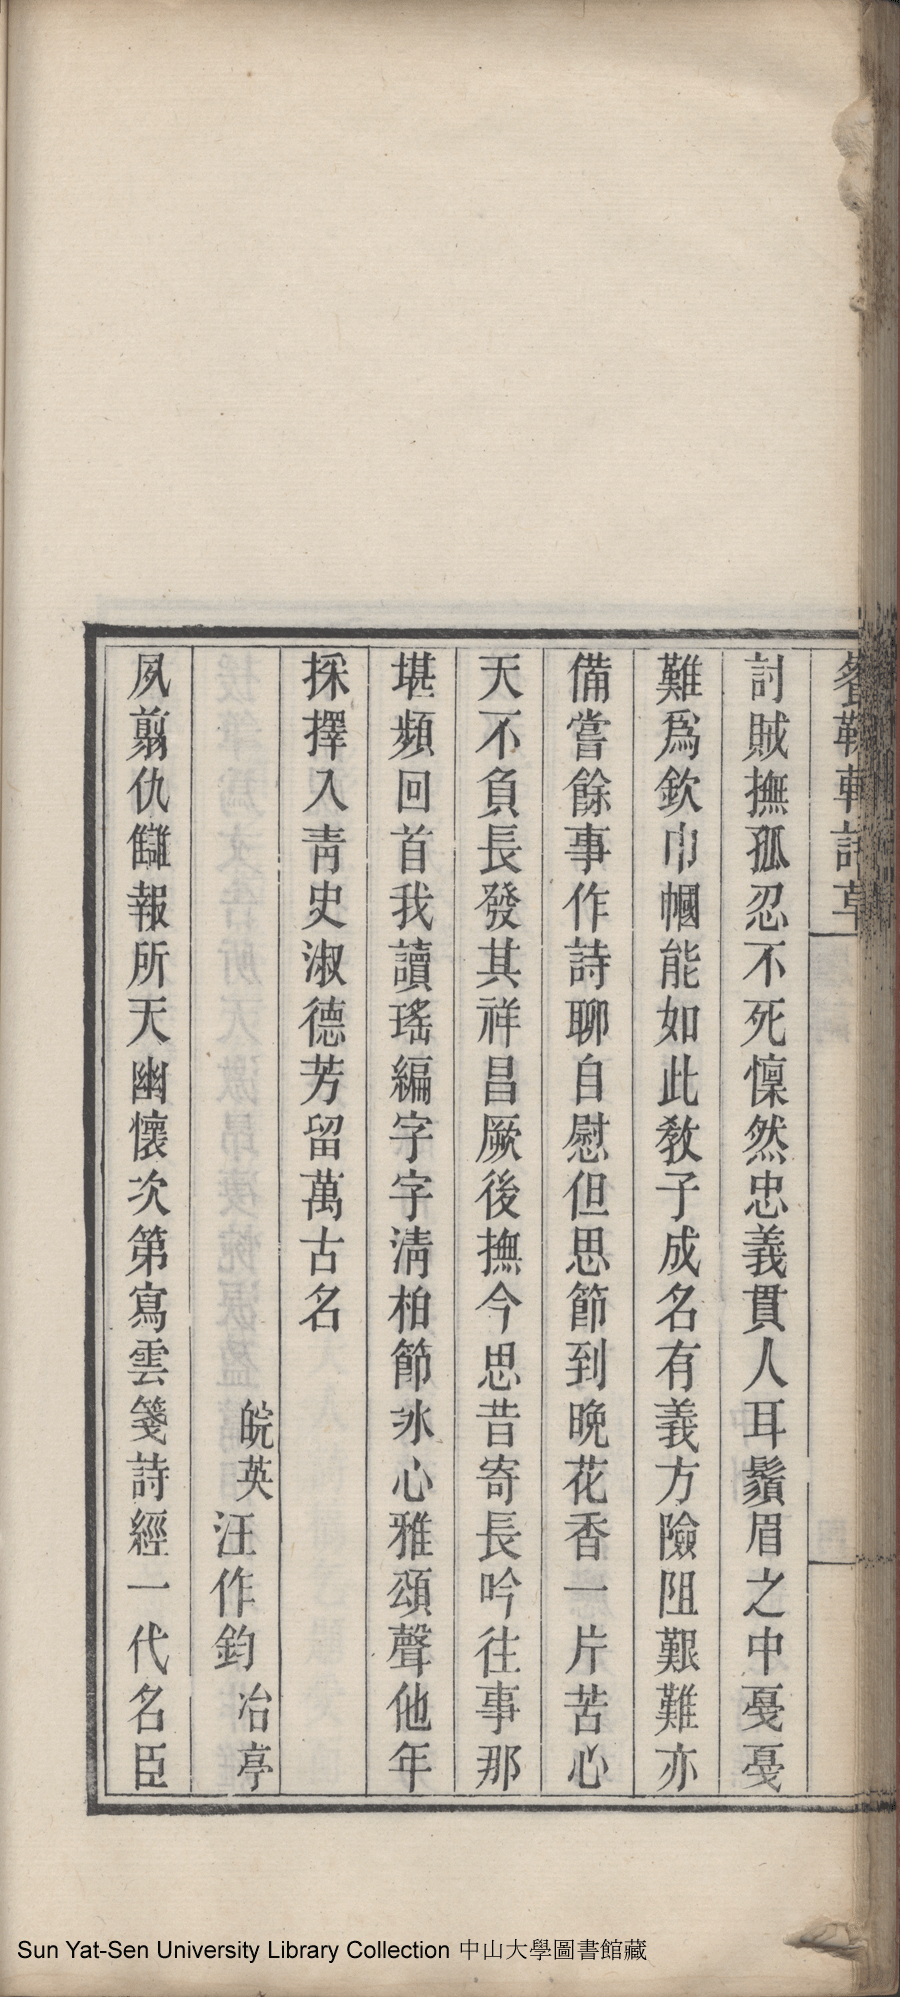 討賊撫孤忍不死懍然忠義貫人耳鬚眉之中戞戞
難爲欽巾幗能如此敎子成名有義方險阻艱難亦
備嘗餘事作詩聊自慰但思節到晚花香一片苦心
天不負長發其祥昌厥後撫今思昔寄長吟往事那
堪頻回首我讀瑤編字字淸柏節氷心雅頌聲他年
採擇入靑史淑德芳留萬古名
皖英汪作鈞冶亭
夙翦仇讎報所天幽懷次第寫雲箋詩經一代名臣
Sun Yat-Sen University Library Collection 中山大學圖書館藏